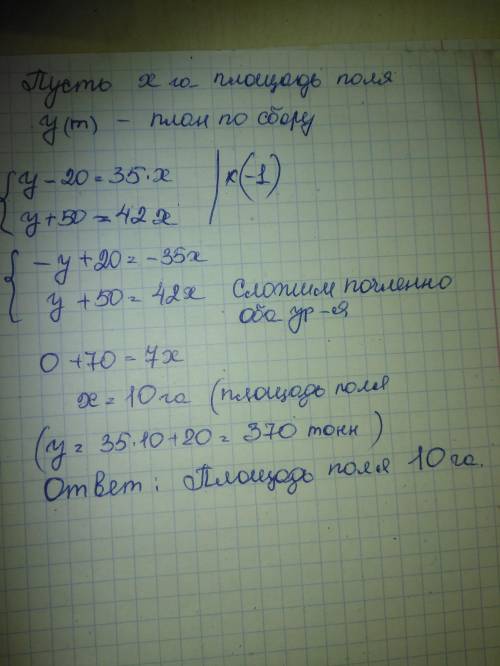 Пусть х га площадь поля
у(т) – план по сбору
{ у – 20 = 35·х | х(-1)
{ у + 50 = 42х
{ – у + 20 = –35х
{ у + 50 = 42х Сложим почленно
оба ур-я
0 + 70 = 7х
х = 10 га (площадь поля
(у = 35·10+20 = 370 тонн)
Ответ: Площадь поля 10 га.